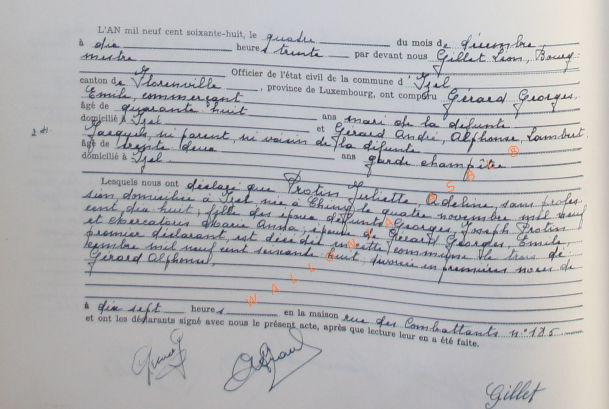 L'AN mil neuf cent soixante-huit, le quatre du mois de décembre,
à dix heures trente par devant nous Gillet Léon, Bourg-
mestre Officier de l'état civil de la commune d'Izel
canton de Florenville, province de Luxembourg, ont comparu Gérard Georges,
Emile, commerçant
âgé de quarante huit ans mari de la défunte
domicilié à Izel et Gérard André, Alphonse, Lambert
Jacques, ni parent, ni voisin de la défunte
âgé de trente deux ans garde champêtre
domicilié à Izel
Lesquels nous ont déclaré que Protin Juliette, Adeline, sans profes-
sion, domiciliée à Izel née à Chiny le quatre novembre mil neuf
cent dix huit, fille des époux défunts Georges, Joseph Protin
et Marie Anna, épouse de Gérard Georges, Emile,
premier déclarant, est décédée en cette commune le trois dé-
cembre mil neuf cent soixante huit, divorcée en premières noces de
Gérard Alphonse,
à dix sept heures en la maison rue des Combattants n° 185
et ont les déclarants signé avec nous le présent acte, après que lecture leur en a été faite.
Gillet